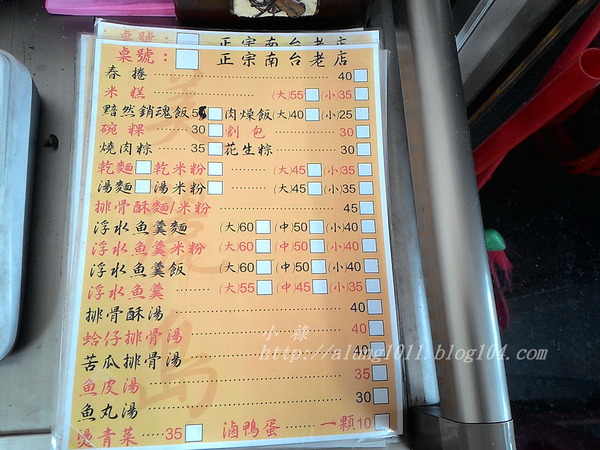 桌號： 正宗南台老店
桌號： 正宗南台老店
春捲 40
米糕 (大)55 (小)35
黯然銷魂飯5 肉燥飯(大)40 (小)25
碗粿 30 割包 30
燒肉粽 35 花生粽 30
乾麵 乾米粉 (大)45 (小)35
湯麵 湯米粉 (大)45 (小)35
排骨酥麵/米粉 45
浮水魚羹麵 (大)60 (中)50 (小)40
浮水魚羹米粉 (大)60 (中)50 (小)40
浮水魚羹飯 (大)60 (中)50 (小)40
浮水魚羹 (大)55 (中)45 (小)35
排骨酥湯 40
蛤仔排骨湯 40
苦瓜排骨湯 40
魚皮湯 35
魚丸湯 30
燙青菜 35 滷鴨蛋 一顆10
小祿
http://alang1011.blog104.com